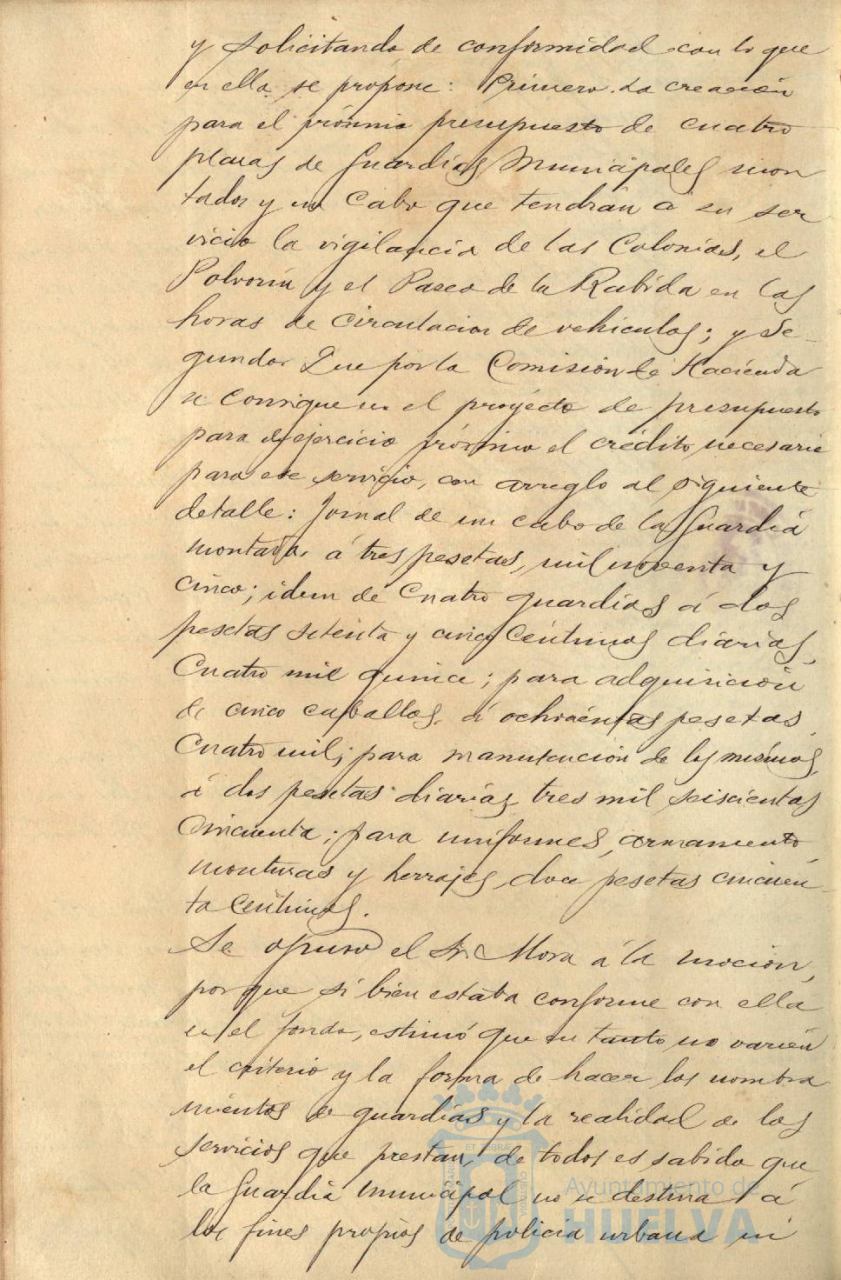 y solicitando de conformidad con lo que
en ella se propone: Primero. La creación
para el próximo presupuesto de cuatro
plazas de Guardias Municipales mon
tados y un Cabo que tendrán a su ser
vicio la vigilancia de las Colonias, el
Polvorín y el Paseo de la Rabida en las
horas de circulacion de vehiculos; y Se-
gundo. Que por la Comisión de Hacienda
se consigne en el proyecto de presupuesto
para el ejercicio próximo el crédito necesario
para ese servicio, con arreglo al siguiente
detalle: Jornal de un cabo de la Guardia
montada á tres pesetas, mil noventa y
cinco; idem de cuatro guardias á dos
pesetas setenta y cinco céntimos diarias,
Cuatro mil quince; para adquisición
de cinco caballos, á ochocientas pesetas,
Cuatro mil; para manutención de los mismos,
á dos pesetas diarias, tres mil seiscientas
Cincuenta; para uniformes, armamento,
monturas y herrajes, doce pesetas cincuen-
ta céntimos.
Se opuso el Sr. Mora á la moción,
porque si bien estaba conforme con ella
en el fondo, estimó que en tanto no varien
el criterio y la forma de hacer los nombra
mientos de guardias y la realidad de los
servicios que prestan, de todos es sabido que
la Guardia municipal no se destina á
los fines propios de policia urbana ni
Ayuntamiento de
HUELVA